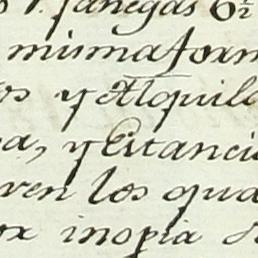 fanegas 6½
misma form
os y Alquila
a, y Estanci
ven los qua
inopia